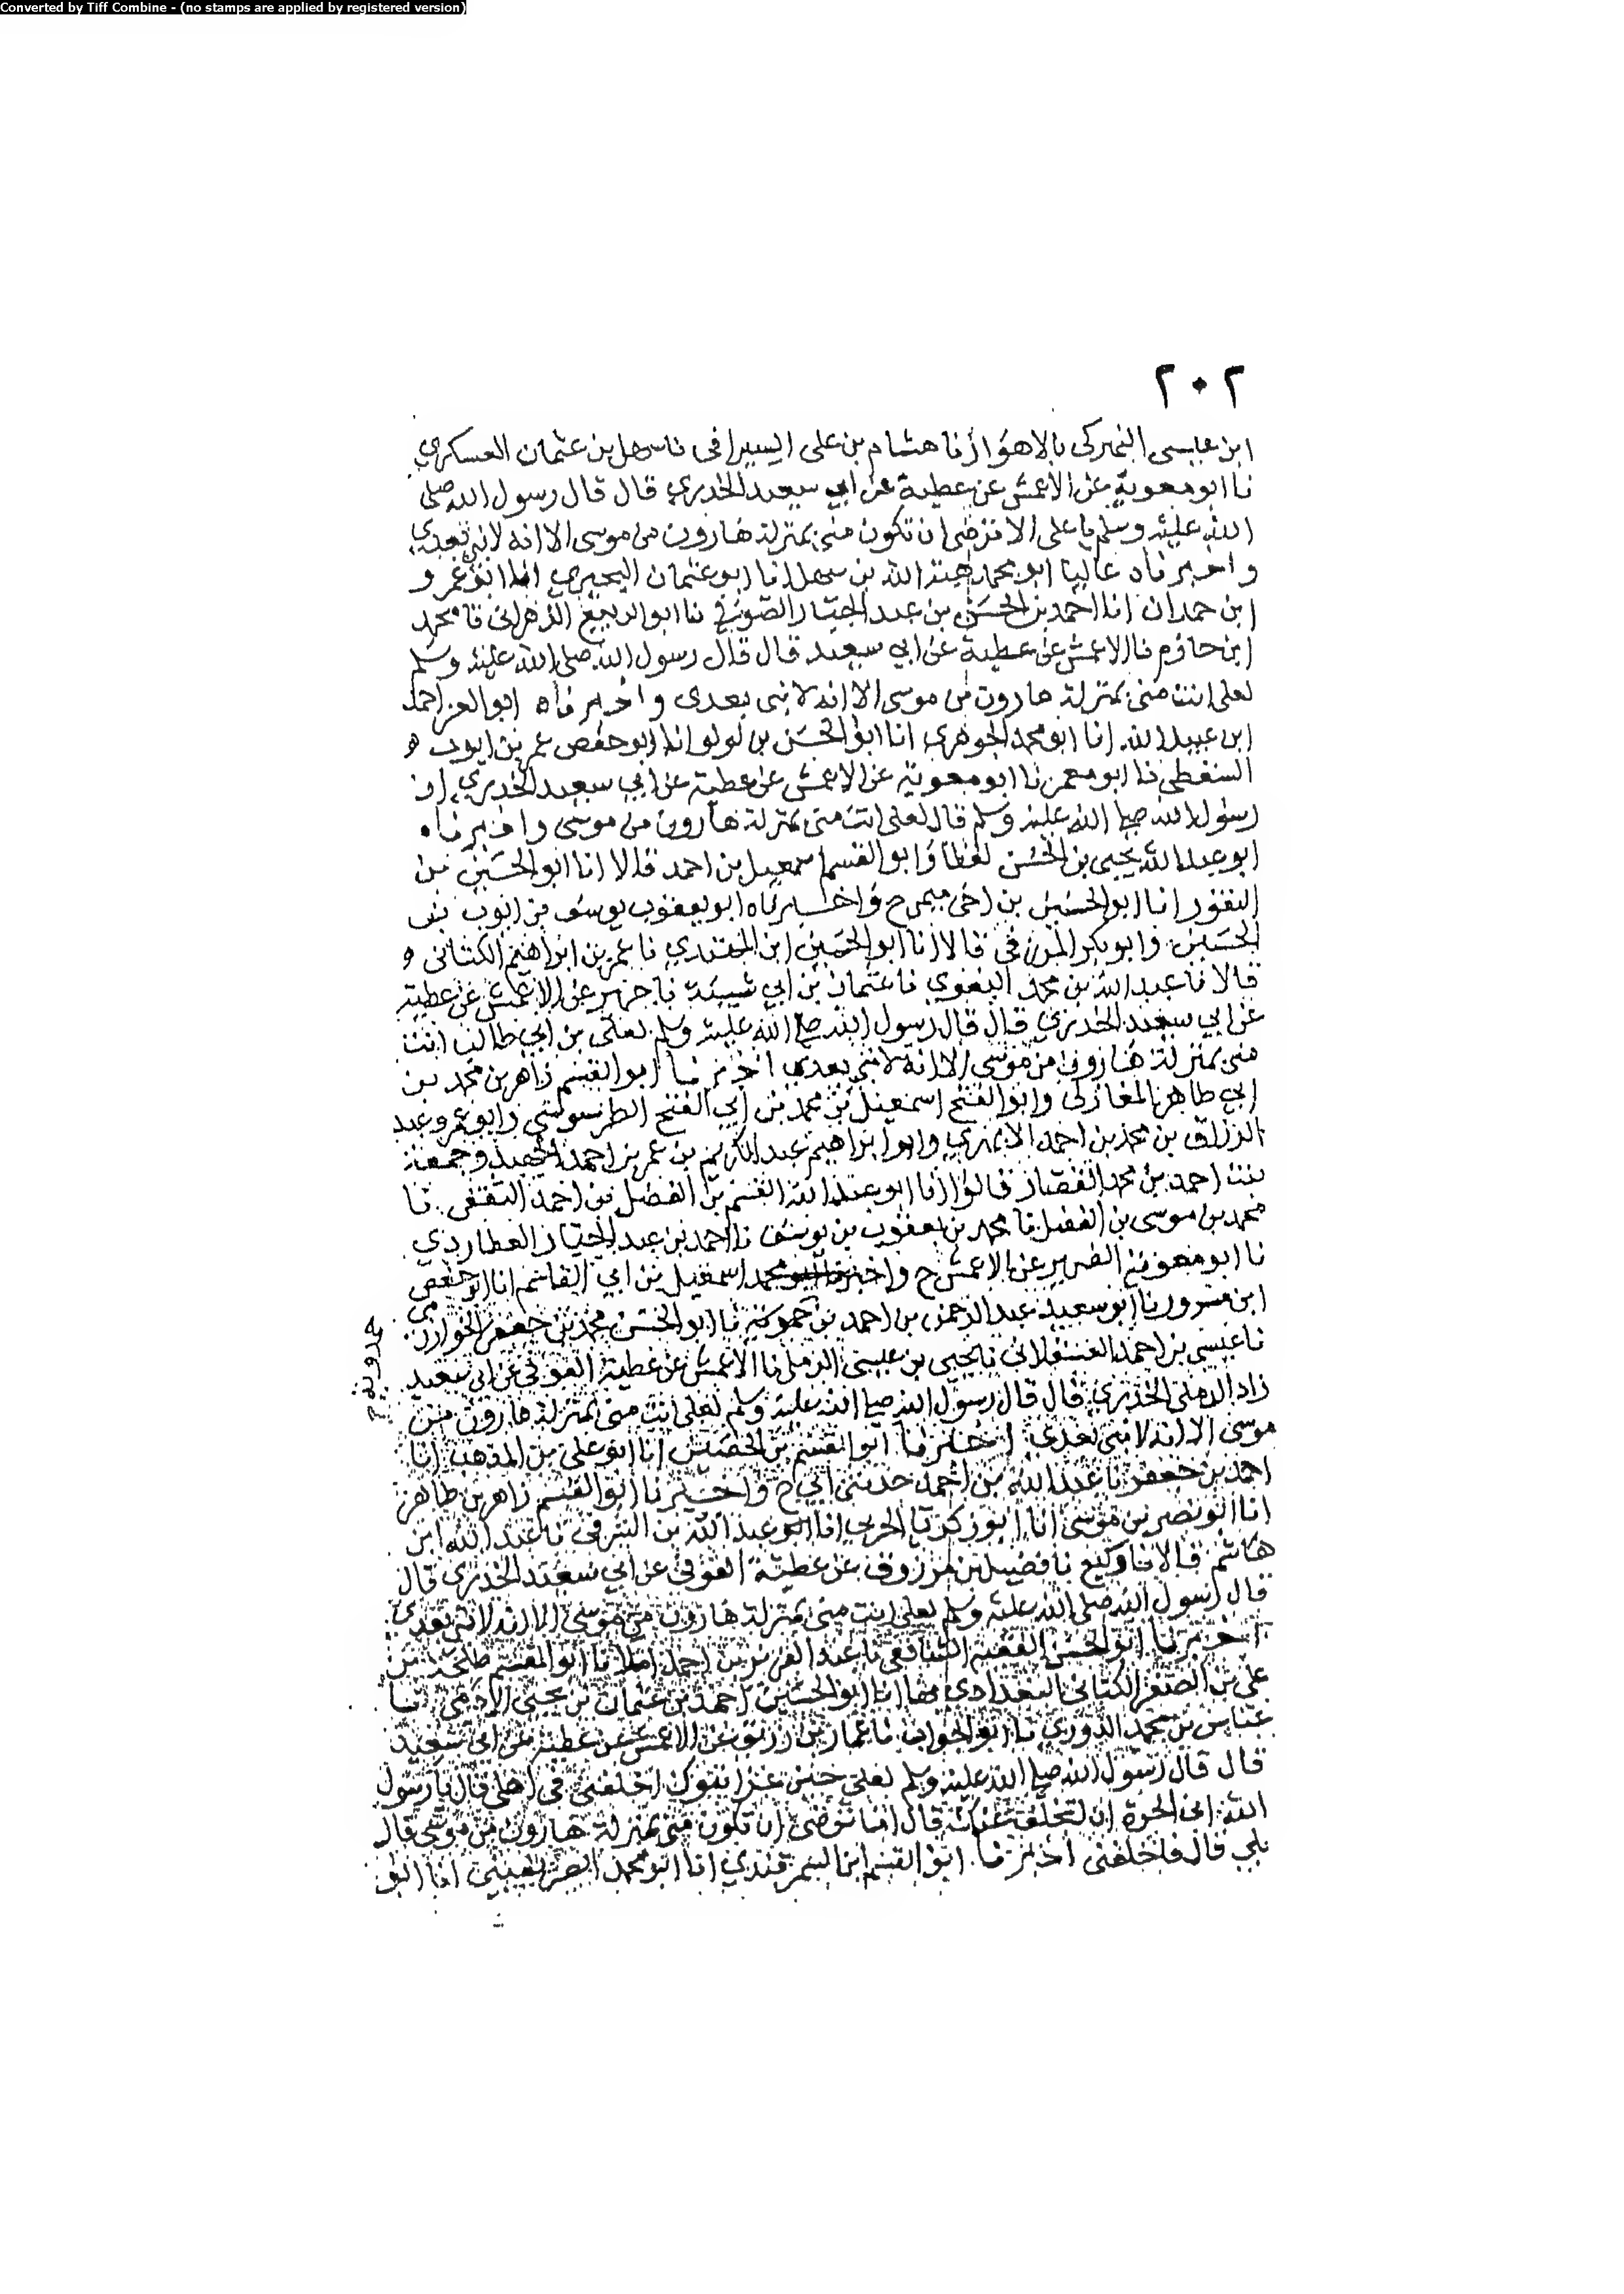 Converted by Tiff Combine - (no stamps are applied by registered version)
٢٠٢
ابن عيسى التمركى بالاهواز نا هشام بن على السيرافى نا سهل بن عثمان العسكري
نا ابو معوية عن الاعمش عن عطية عن ابي سعيد الخدري قال قال رسول الله صلى
الله عليه وسلم يا على الا ترضى ان تكون منى بمنزلة هارون من موسى الا انه لا نبى بعدي
واخبرناه عاليا ابو محمد هبة الله بن سهل انا ابو عثمان البحيري انا ابو عمرو
ابن حمدان انا احمد بن الحسن بن عبد الجبار الصوفي نا ابو الربيع الزهرانى نا محمد
ابن حازم نا الاعمش عن عطية عن ابي سعيد قال قال رسول الله صلى الله عليه وسلم
لعلى انت منى بمنزلة هارون من موسى الا انه لا نبى بعدى واخبرناه ابو العز احمد
ابن عبيد الله انا ابو محمد الجوهري انا ابو الحسن بن لولو انا ابو حفص عمر بن ايوب
السقطى نا ابو معمر نا ابو معوية عن الاعمش عن عطية عن ابي سعيد الخدري ان
رسول الله صلى الله عليه وسلم قال لعلى انت منى بمنزلة هارون من موسى واخبرناه
ابو عبد الله يحيى بن الحسن لفظا وابو القسم اسمعيل بن احمد قالا انا ابو الحسين بن
النقور انا ابو الحسين بن اخى ميمى ح واخبرناه ابو يعقوب يوسف بن ايوب بن
الحسين وابو بكر المزرفى قالا انا ابو الحسين ابن المهتدي نا عمر بن ابراهيم الكتانى
قالا نا عبد الله بن محمد البغوي نا عثمان بن ابي شيبة نا جرير عن الاعمش عن عطية
عن ابي سعيد الخدري قال قال رسول الله صلى الله عليه وسلم لعلى بن ابي طالب انت
منى بمنزلة هارون من موسى الا انه لا نبى بعدي اخبرنا ابو القسم زاهر بن محمد بن
ابي طاهر المغازلى وابو الفتح اسمعيل بن محمد بن ابي الفتح الطرسوسي وابو عمرو عبد
الرزاق بن محمد بن احمد الابهري وابو ابراهيم عبد الكريم بن عمر بن احمد وجمعة
بنت احمد بن محمد القصار قالوا انا ابو عبد الله القسم بن الفضل بن احمد الثقفى نا
محمد بن موسى بن الفضل نا محمد بن يعقوب بن يوسف نا احمد بن عبد الجبار العطاردي
نا ابو معوية الضرير عن الاعمش ح واخبرنا ابو محمد اسمعيل بن ابي القاسم انا ابو حفص
ابن مسرور نا ابو سعيد عبد الرحمن بن احمد بن حمويه نا ابو الحسن محمد بن جعفر الخوارزمى
نا عيسى بن احمد العسقلاني نا يحيى بن عيسى الرملى نا الاعمش عن عطية العوفى عن ابى سعيد
زاد الرملى الخدري قال قال رسول الله صلى الله عليه وسلم لعلى انت منى بمنزلة هارون من
موسى الا انه لا نبى بعدى اخبرنا ابو القسم بن الحصين انا ابو على بن المذهب انا
احمد بن جعفر نا عبد الله بن احمد حدثنى ابي ح واخبرنا ابو القسم زاهر بن طاهر
انا ابو نصر بن موسى انا ابو زكريا الحربي انا ابو عبد الله بن الشرقى نا عبد الله ابن
هاشم قالا نا وكيع نا فضيل بن مرزوق عن عطية العوفى عن ابي سعيد الخدري قال
قال رسول الله صلى الله عليه وسلم لعلى انت منى بمنزلة هارون من موسى الا انه لا نبى بعدي
اخبرنا ابو الحسن الفقيه الشافعى نا عبد العزيز بن احمد املا نا ابو القسم طلحة بن
على بن الصقر الكتانى البغدادي بها انا ابو الحسين احمد بن عثمان بن يحيى الادمى نا
عباس بن محمد الدوري نا ابو الجواب نا عمار بن رزيق عن الاعمش عن عطية عن ابى سعيد
قال قال رسول الله صلى الله عليه وسلم لعلى حين غزا تبوك اخلفنى فى اهلى قال يا رسول
الله انى اكره ان اتخلف عنك قال اما ترضى ان تكون منى بمنزلة هارون من موسى قال
بلى قال فاخلفنى اخبرنا ابو القسم ابن السمرقندي انا ابو محمد الصريفينى انا ابو